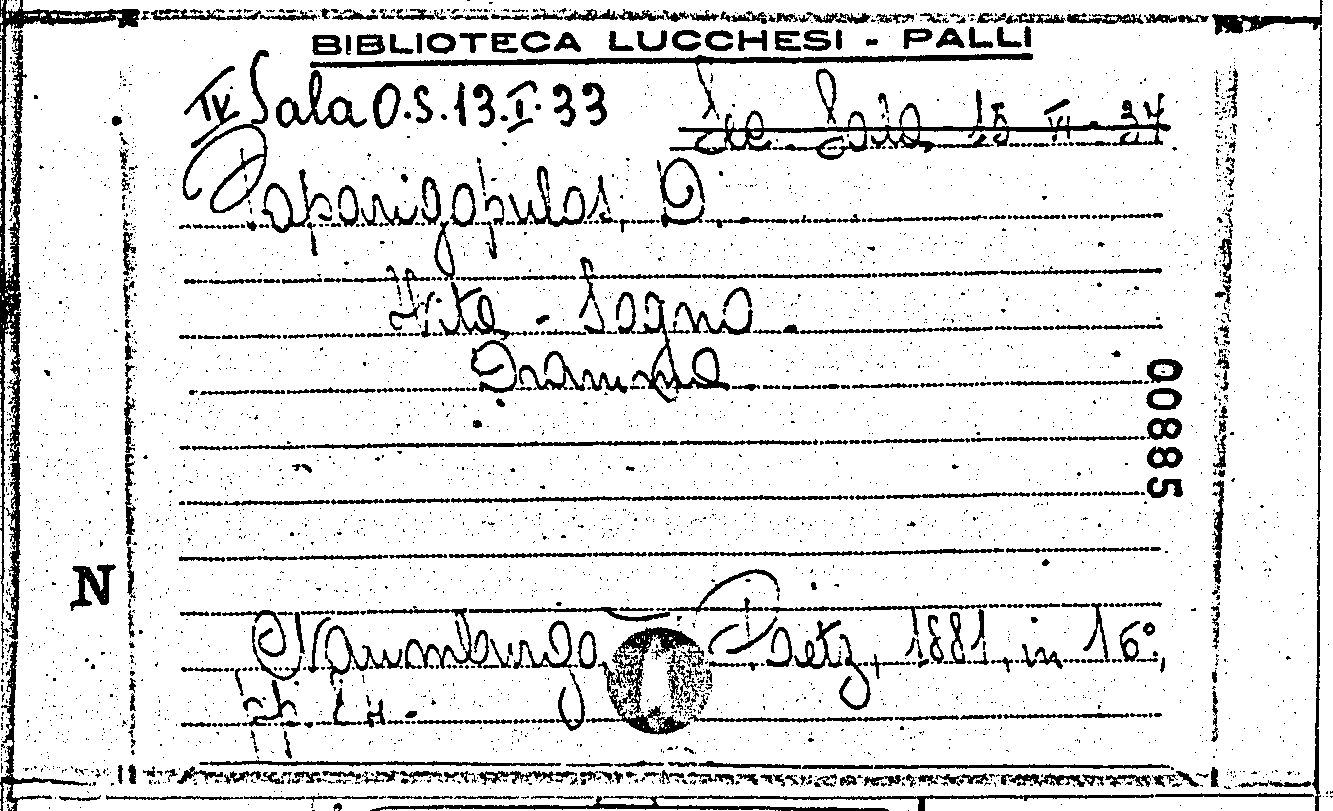 BIBLIOTECA LUCCHESI - PALLI
IV Sala O.S.13.I.33 Sic. Sala, 15 VI - 34
Paparigopulos, D.
Vita - Sogno.
Dramma.
00885
N
Naumburgo, Paetz, 1881, in 16°,
pp.